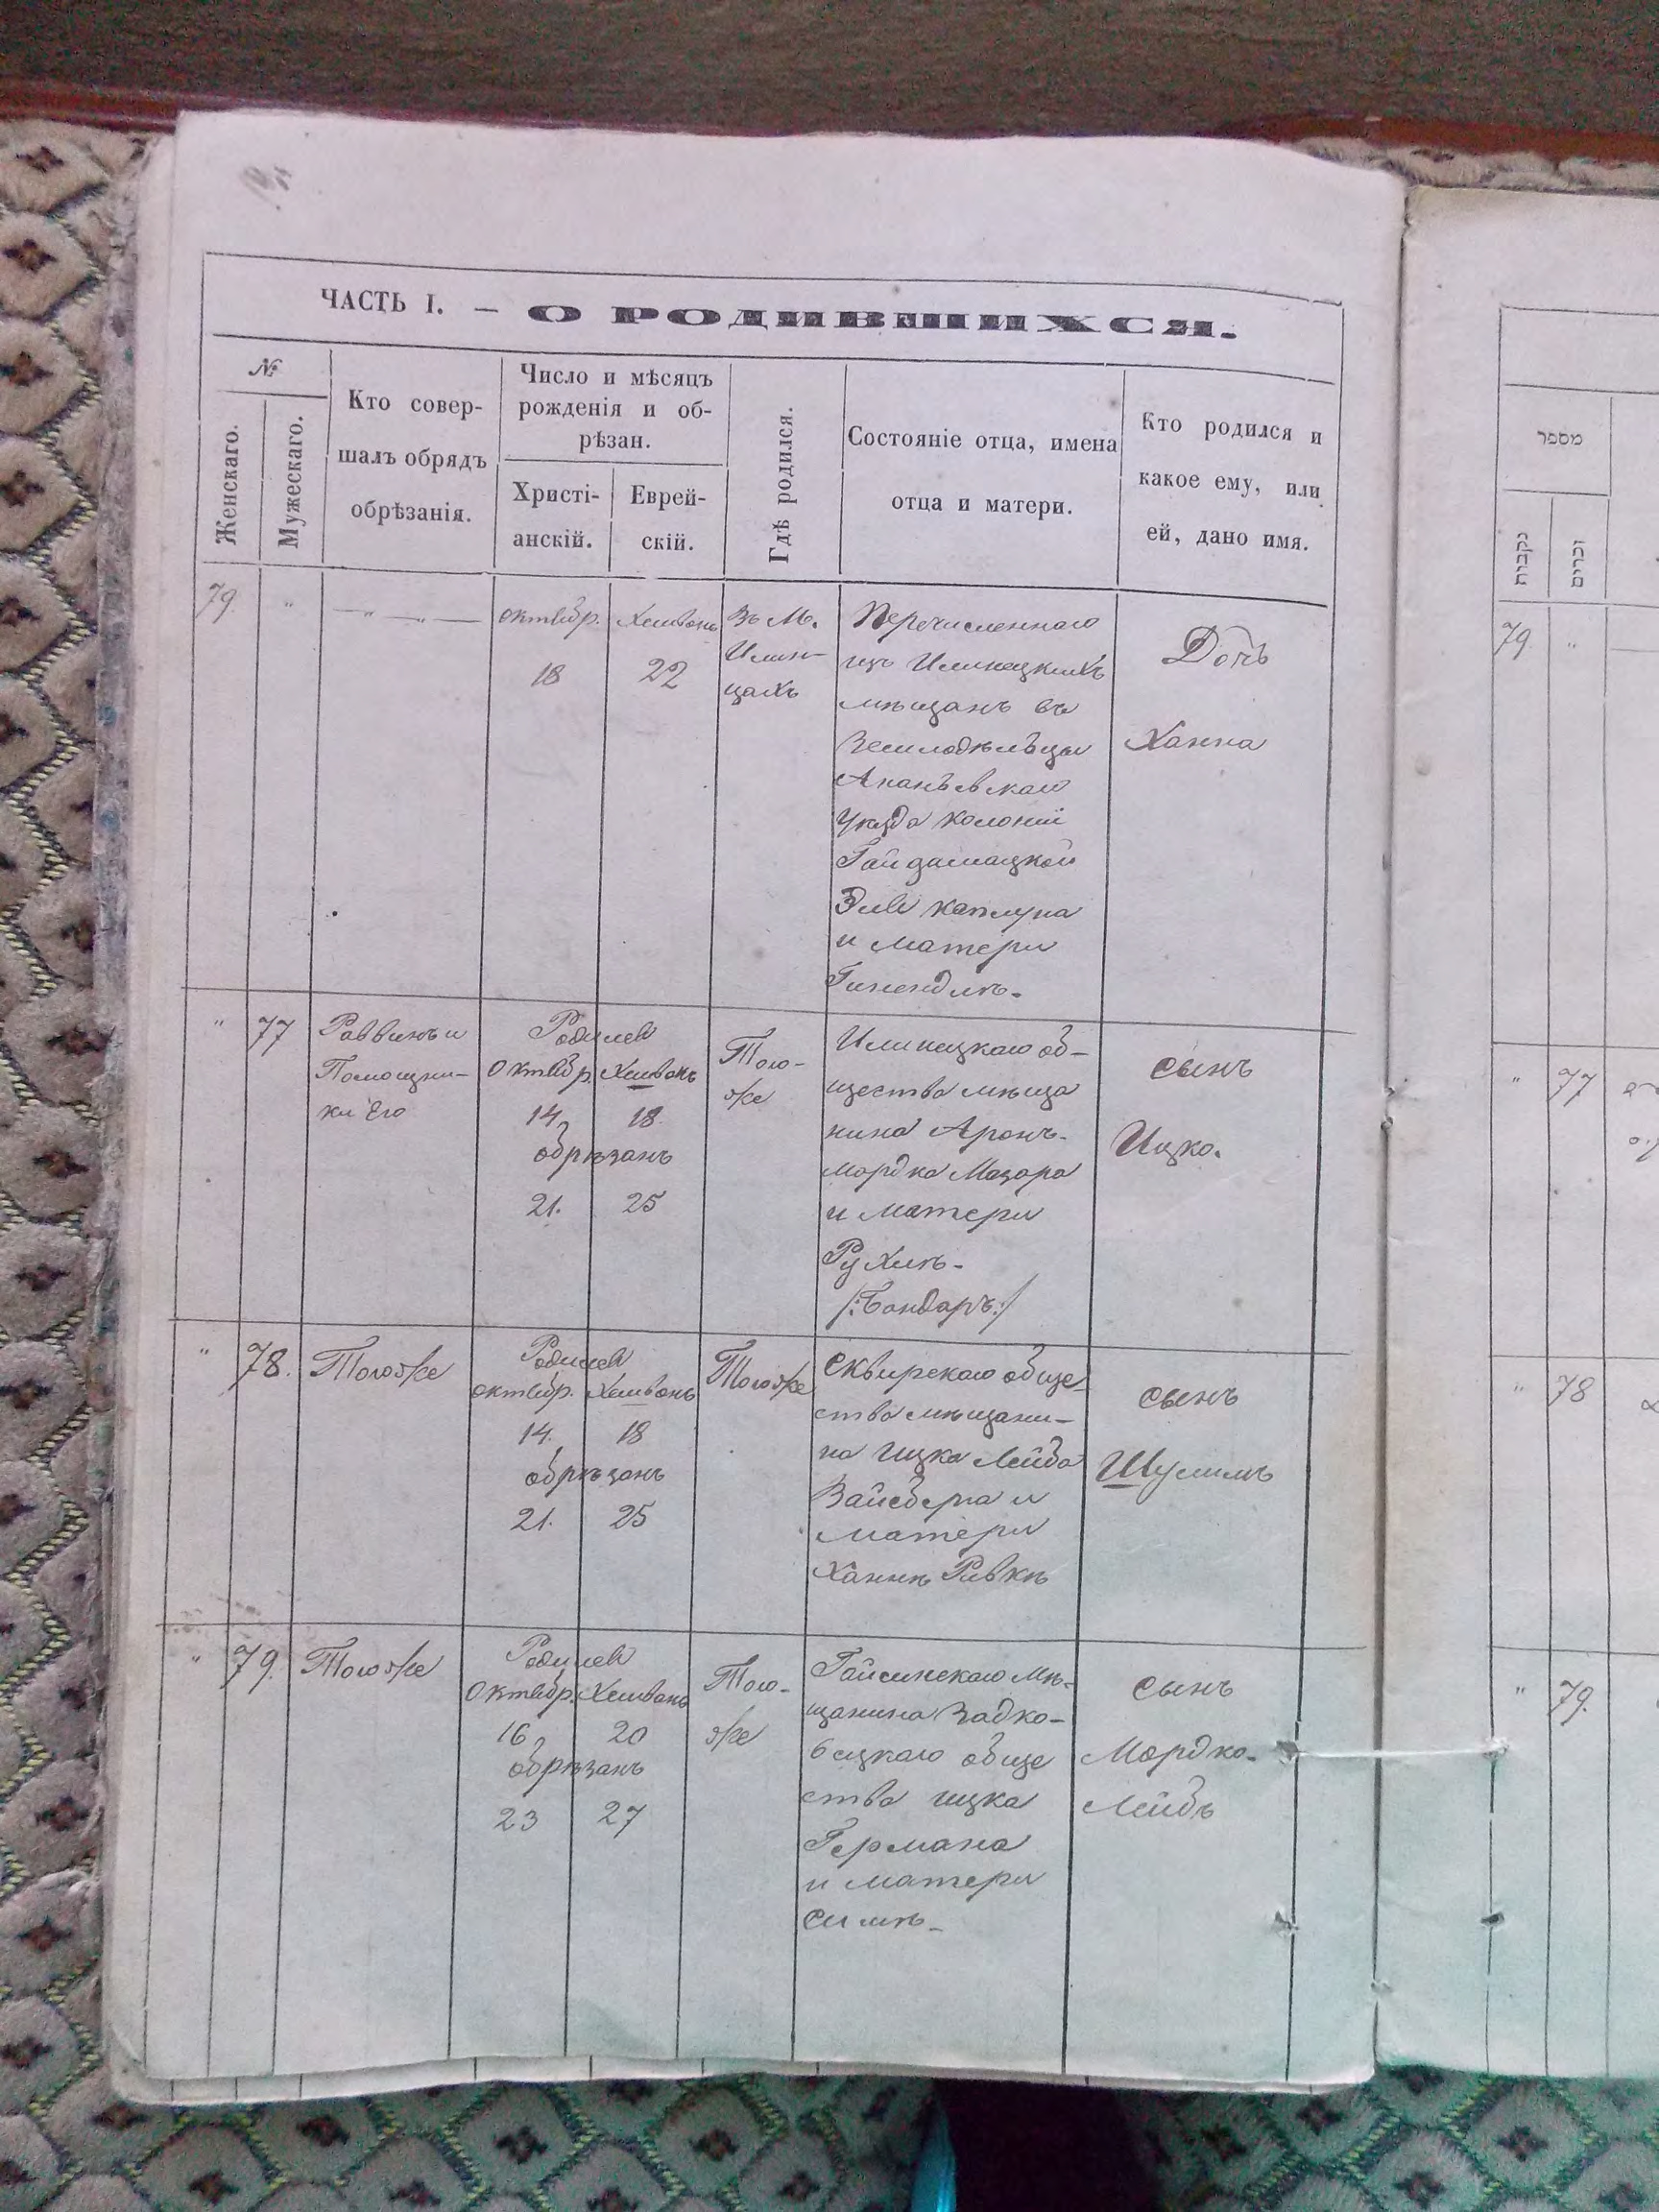 ЧАСТЬ I. — О РОДИВШИХСЯ.
№
Женскаго.
Мужескаго.
Кто совер-
шалъ обрядъ
обрѣзанія.
Число и мѣсяцъ
рожденія и об-
рѣзан.
Христі-
анскій.
Еврей-
скій.
Гдѣ родился.
Состояніе отца, имена
отца и матери.
Кто родился и
какое ему, или
ей, дано имя.
79
"
— " —
октябр.
18
Хешвонъ
22
Въ М.
Илин-
цахъ
Перечисленнаго
изъ Илинецкихъ
мѣщанъ въ
Земледѣльцы
Ананьевскаго
Уѣзда Колоніи
Гайдамацкой
Каплуна
и матери
Гинендлѣ.
Дочь
Ханна
"
77
Раввинъ и
Помощни-
ки Его
Родился
Октябр.
Хешвонъ
14
18.
обрѣзанъ
21.
25
Того-
же
Илинецкаго об-
щества мѣща
нина Аронъ-
Мордка Мазора
и матери
Рухлѣ-
/:Бондаръ:/
сынъ
Ицко.
"
78.
Тогоже
Родился
октябр.
Хешвонъ
14.
18
обрѣзанъ
21.
25
Тогоже
Сквирскаго обще-
ства мѣщани-
на Ицка Лейба
Вайсберга и
матери
Ханнѣ Ривкѣ
сынъ
Шулимъ
"
79.
Тогоже
Родился
Октябр.
Хешвонъ
16
20
обрѣзанъ
23
27
Того-
же
Гайсинскаго Мѣ-
щанина Задко-
вецкаго обще
ства Ицка
Германа
и матери
Симѣ-
сынъ
Мордко-
Лейбъ
מספר
נקבות
זכרים
79
"
"
77
"
78
"
79.